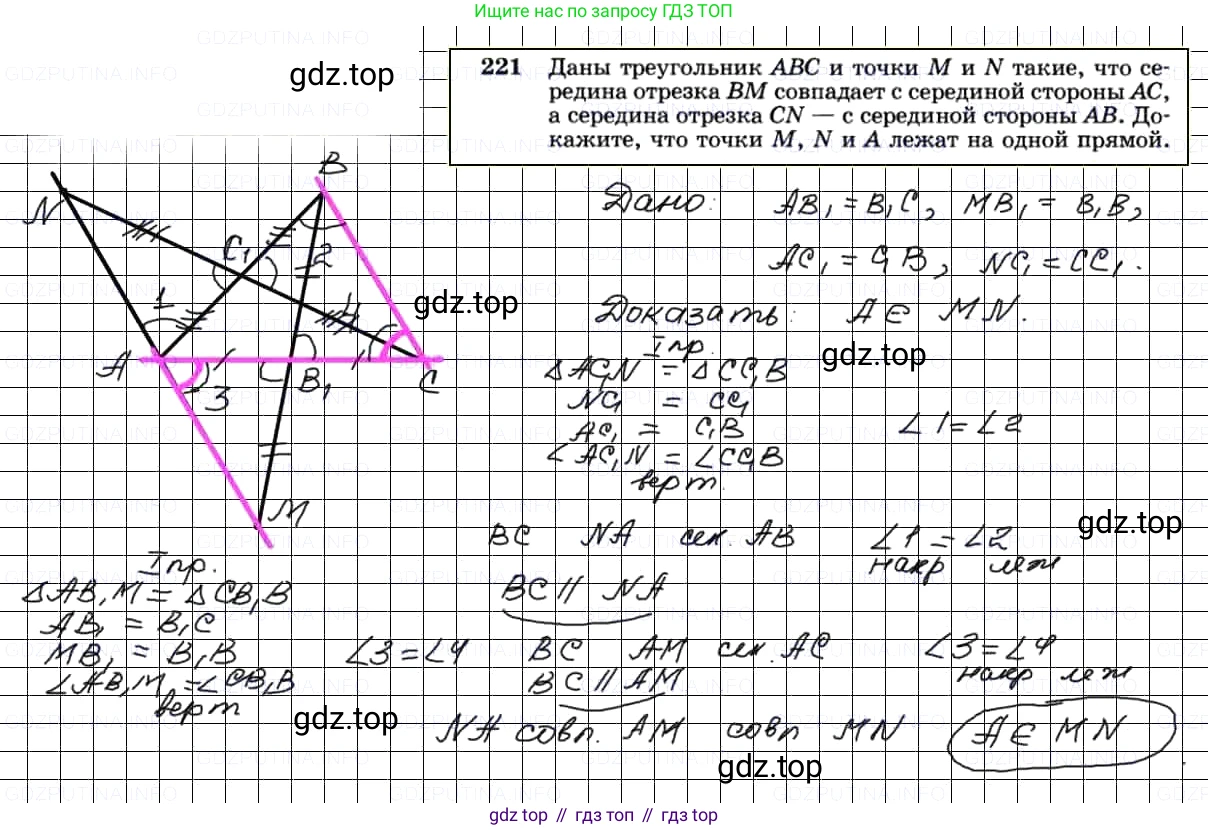 Ищите нас по запросу ГДЗ ТОП
221 Даны треугольник ABC и точки M и N такие, что се-
редина отрезка BM совпадает с серединой стороны AC,
а середина отрезка CN — с серединой стороны AB. До-
кажите, что точки M, N и A лежат на одной прямой.
gdz.top
B
N
C₁
2
1
4
gdz.top
A
3
B₁
C
M
Дано: AB₁ = B₁C, MB₁ = B₁B,
AC₁ = C₁B, NC₁ = CC₁.
Доказать: A ∈ MN.
I пр.
gdz.top
△AC₁N = △CC₁B
NC₁ = CC₁
AC₁ = C₁B
∠1 = ∠2
∠AC₁N = ∠CC₁B
верт.
gdz.top
BC NA сек. AB ∠1 = ∠2
накр леж
BC || NA
I пр.
△AB₁M = △CB₁B
AB₁ = B₁C
MB₁ = B₁B
∠3 = ∠4 BC AM сек. AC ∠3 = ∠4
накр леж
∠AB₁M = ∠CB₁B
BC || AM
верт
gdz.top
NA совп. AM совп MN A ∈ MN
gdz.top
gdz.top // гдз топ // gdz top
GDZPUTINA.INFO